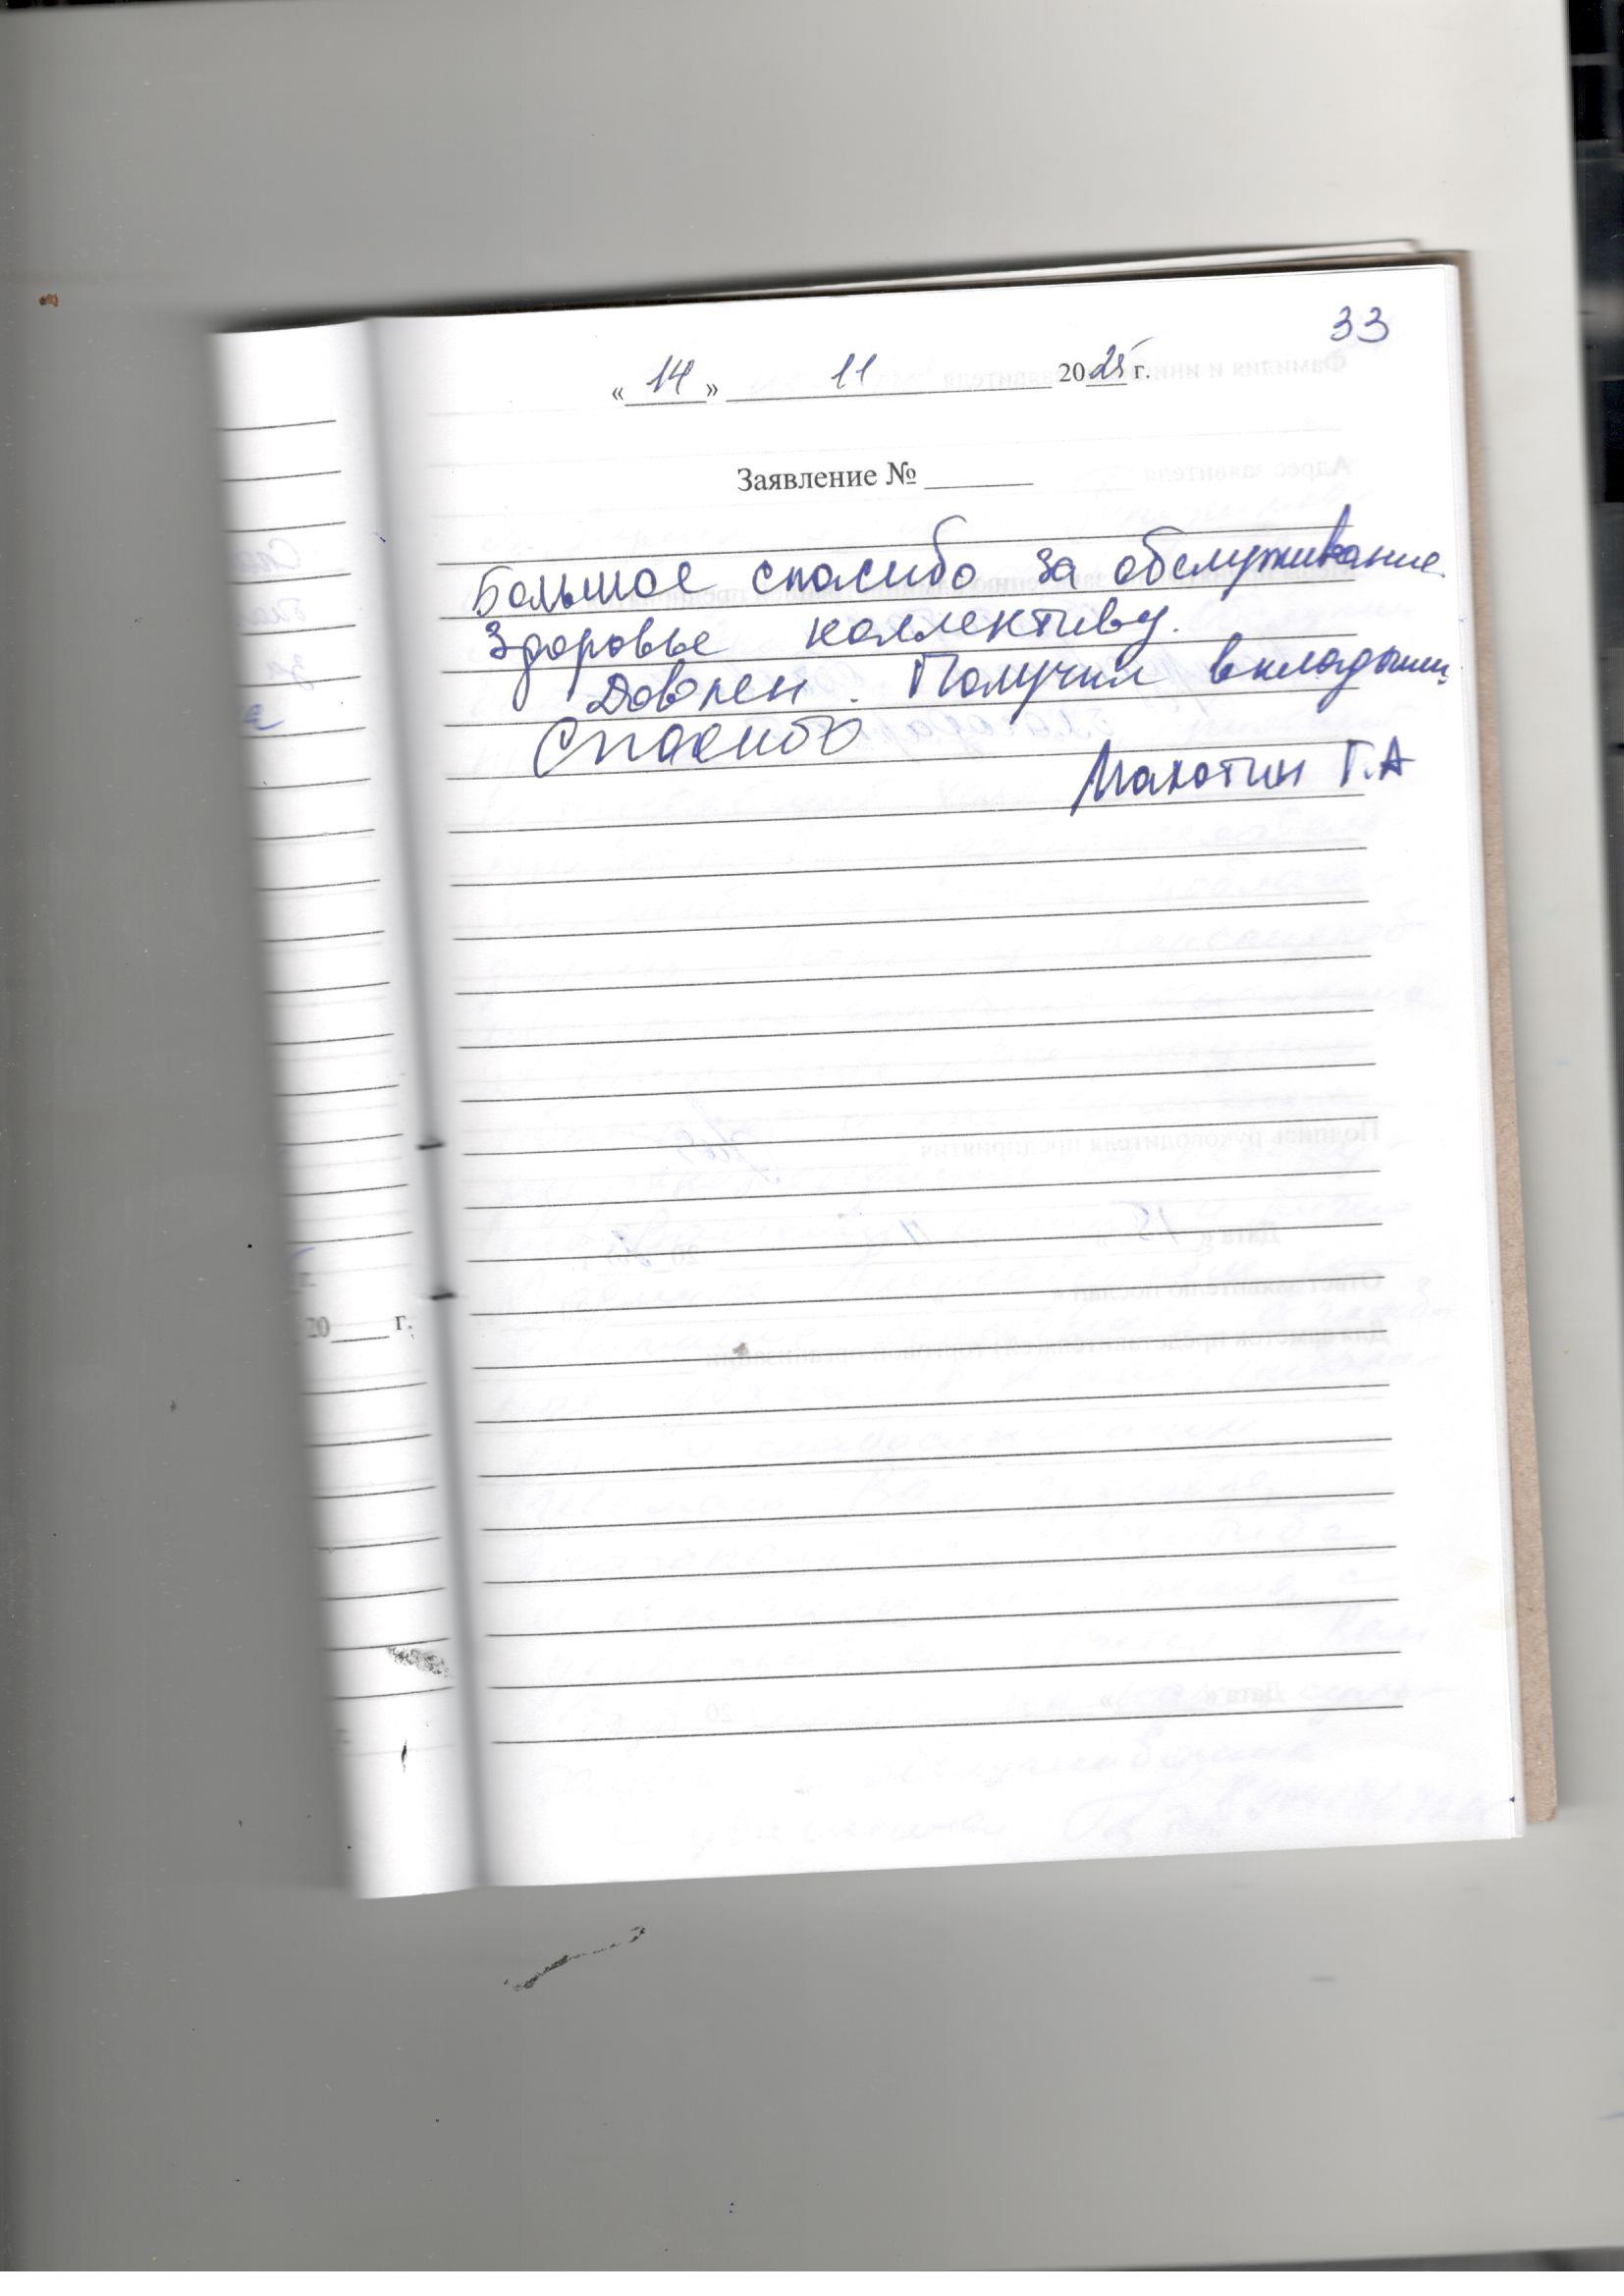 33
« 14 » 11 2025 г.
Заявление №
Большое спасибо за обслуживание.
Здоровье коллективу.
Доволен. Получил вкладыши,
Спасибо
Махотин Г.А
20 г.